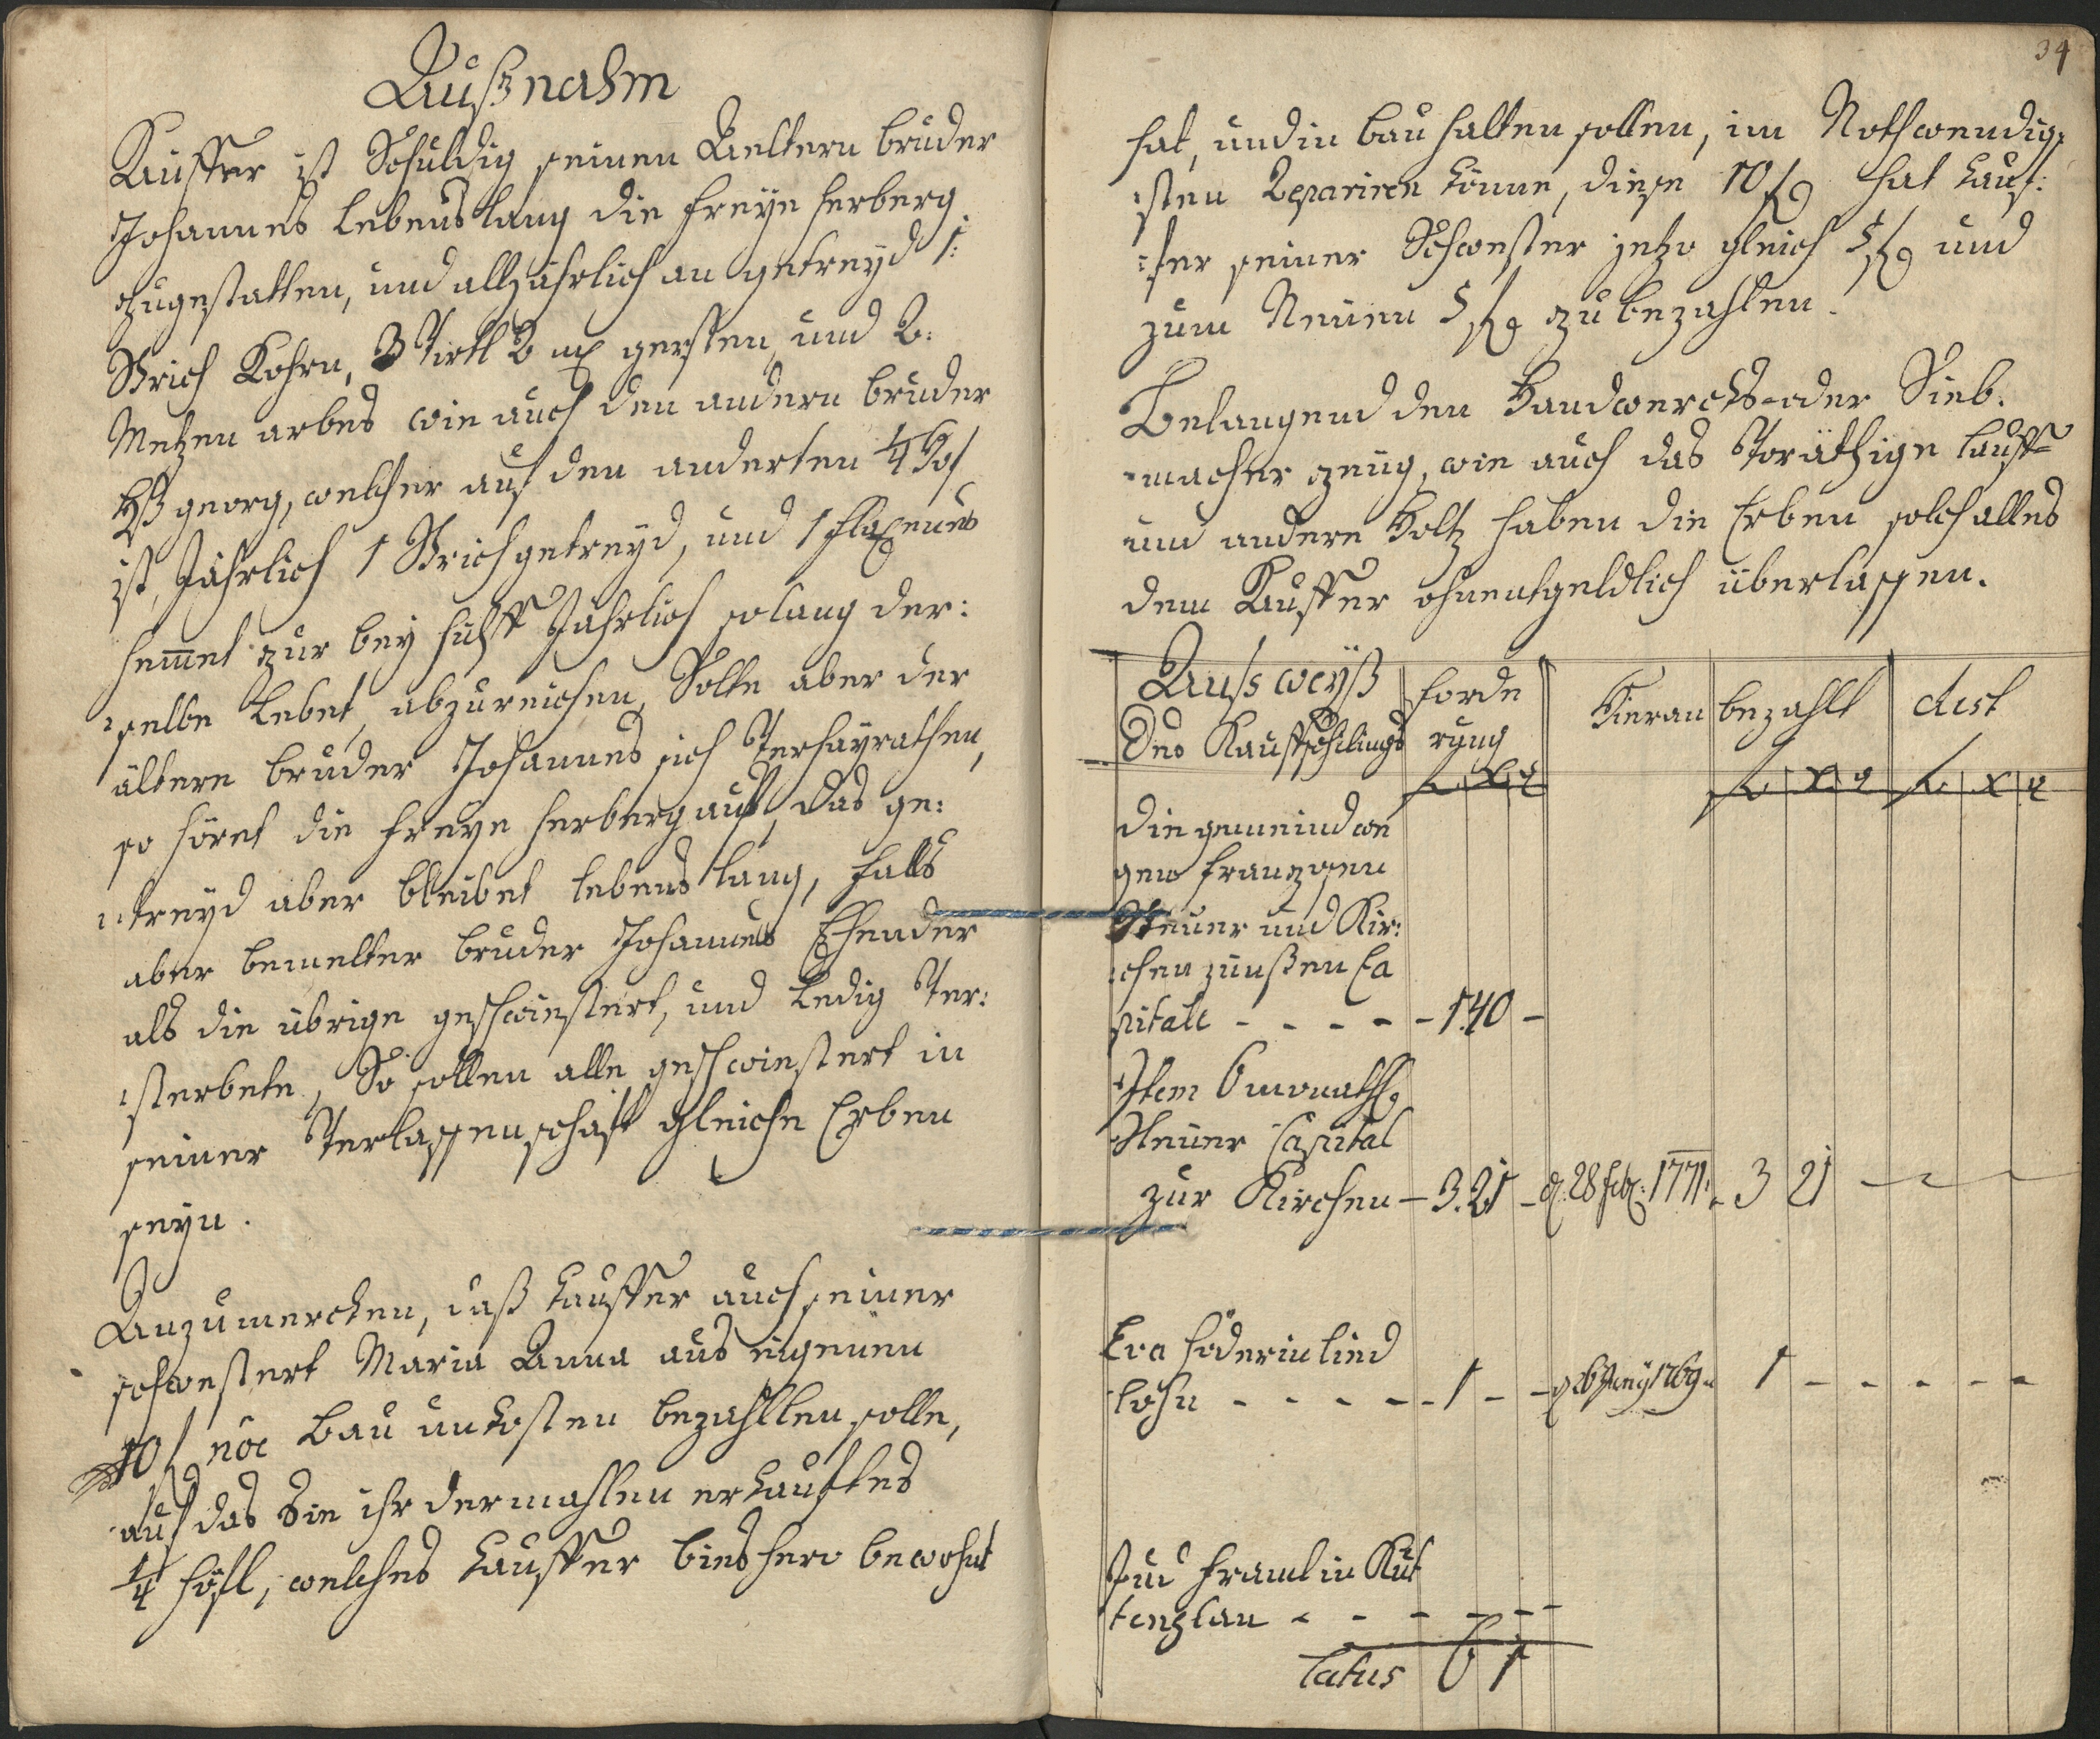 Außnahm
Kauffer ist Schuldig seinen Aeltern bruder
Johannes lebenslang die freye herberg
zugestatten, und alljährlich an getreyd 1:
Strich Kohrn, 3 Virtl 2 mß gersten, und 2:
Metzen arbes wie auch den andern bruder
Hß georg, welcher auf den anderten 1/4 Hof
ist, Jährlich 1 Strich getreyd, und 1 flaxenes
hem̅et zur bey hülff Jährlich so lang der:
:selbe Lebet, abzureichen, Solte aber der
ältere bruder Johannes sich Verheyrathen,
so höret die freye herberg auf, das ge:
:treyd aber bleibet lebens lang, falls
aber bemelter bruder Johannes Ehender
als die übrige geschwistert, und Ledig Ver:
:sterbete, So sollen alle geschwistert in
seiner Verlassenschaft gleiche Erben
seyn.
Anzumercken, daß Kauffer auch seiner
schwestert Maria Anna aus eigenen
10 f nōe bau unkosten bezahlen solle,
auf das Sie ihr dermahlen erkauftes
1/4 höfl, welches Kauffer bishero bewohnt
34
hat, und in bau halten sollen, im Nothwendig:
:sten Repariren könne, diese 10 f hat Kauf:
:fer seiner Schwester jetzo gleich 5 f und
zum Neuen 5 f zu bezahlen.
Belangend den Handwercks- oder Sieb:
:macher zeüg, wie auch das Vorräthige lauff
und andere Holtz haben die Erben solch alles
dem Kauffer ohnentgeldlich überlassen.
Aussweyß
Des Kaufschilings
forde
rung
Hieran
bezahlt
Rest
f x ₰
f x ₰
f x ₰
die gemeind we
gen franzosen
Steuer und Kir:
:chen zünßen Ca
pitale - - - - - 1.40 -
Item 6 monathl
Steuer Capital
zur Kirchen - 3.21 - d. 28 feb: 1771. 3 21
Eva Föderin lied
lohn - - - - - 1 - - d 26 Juny 1769 1 - - - - -
Jud framl in Kut
tenplan - - - - - -
Latus 6 1